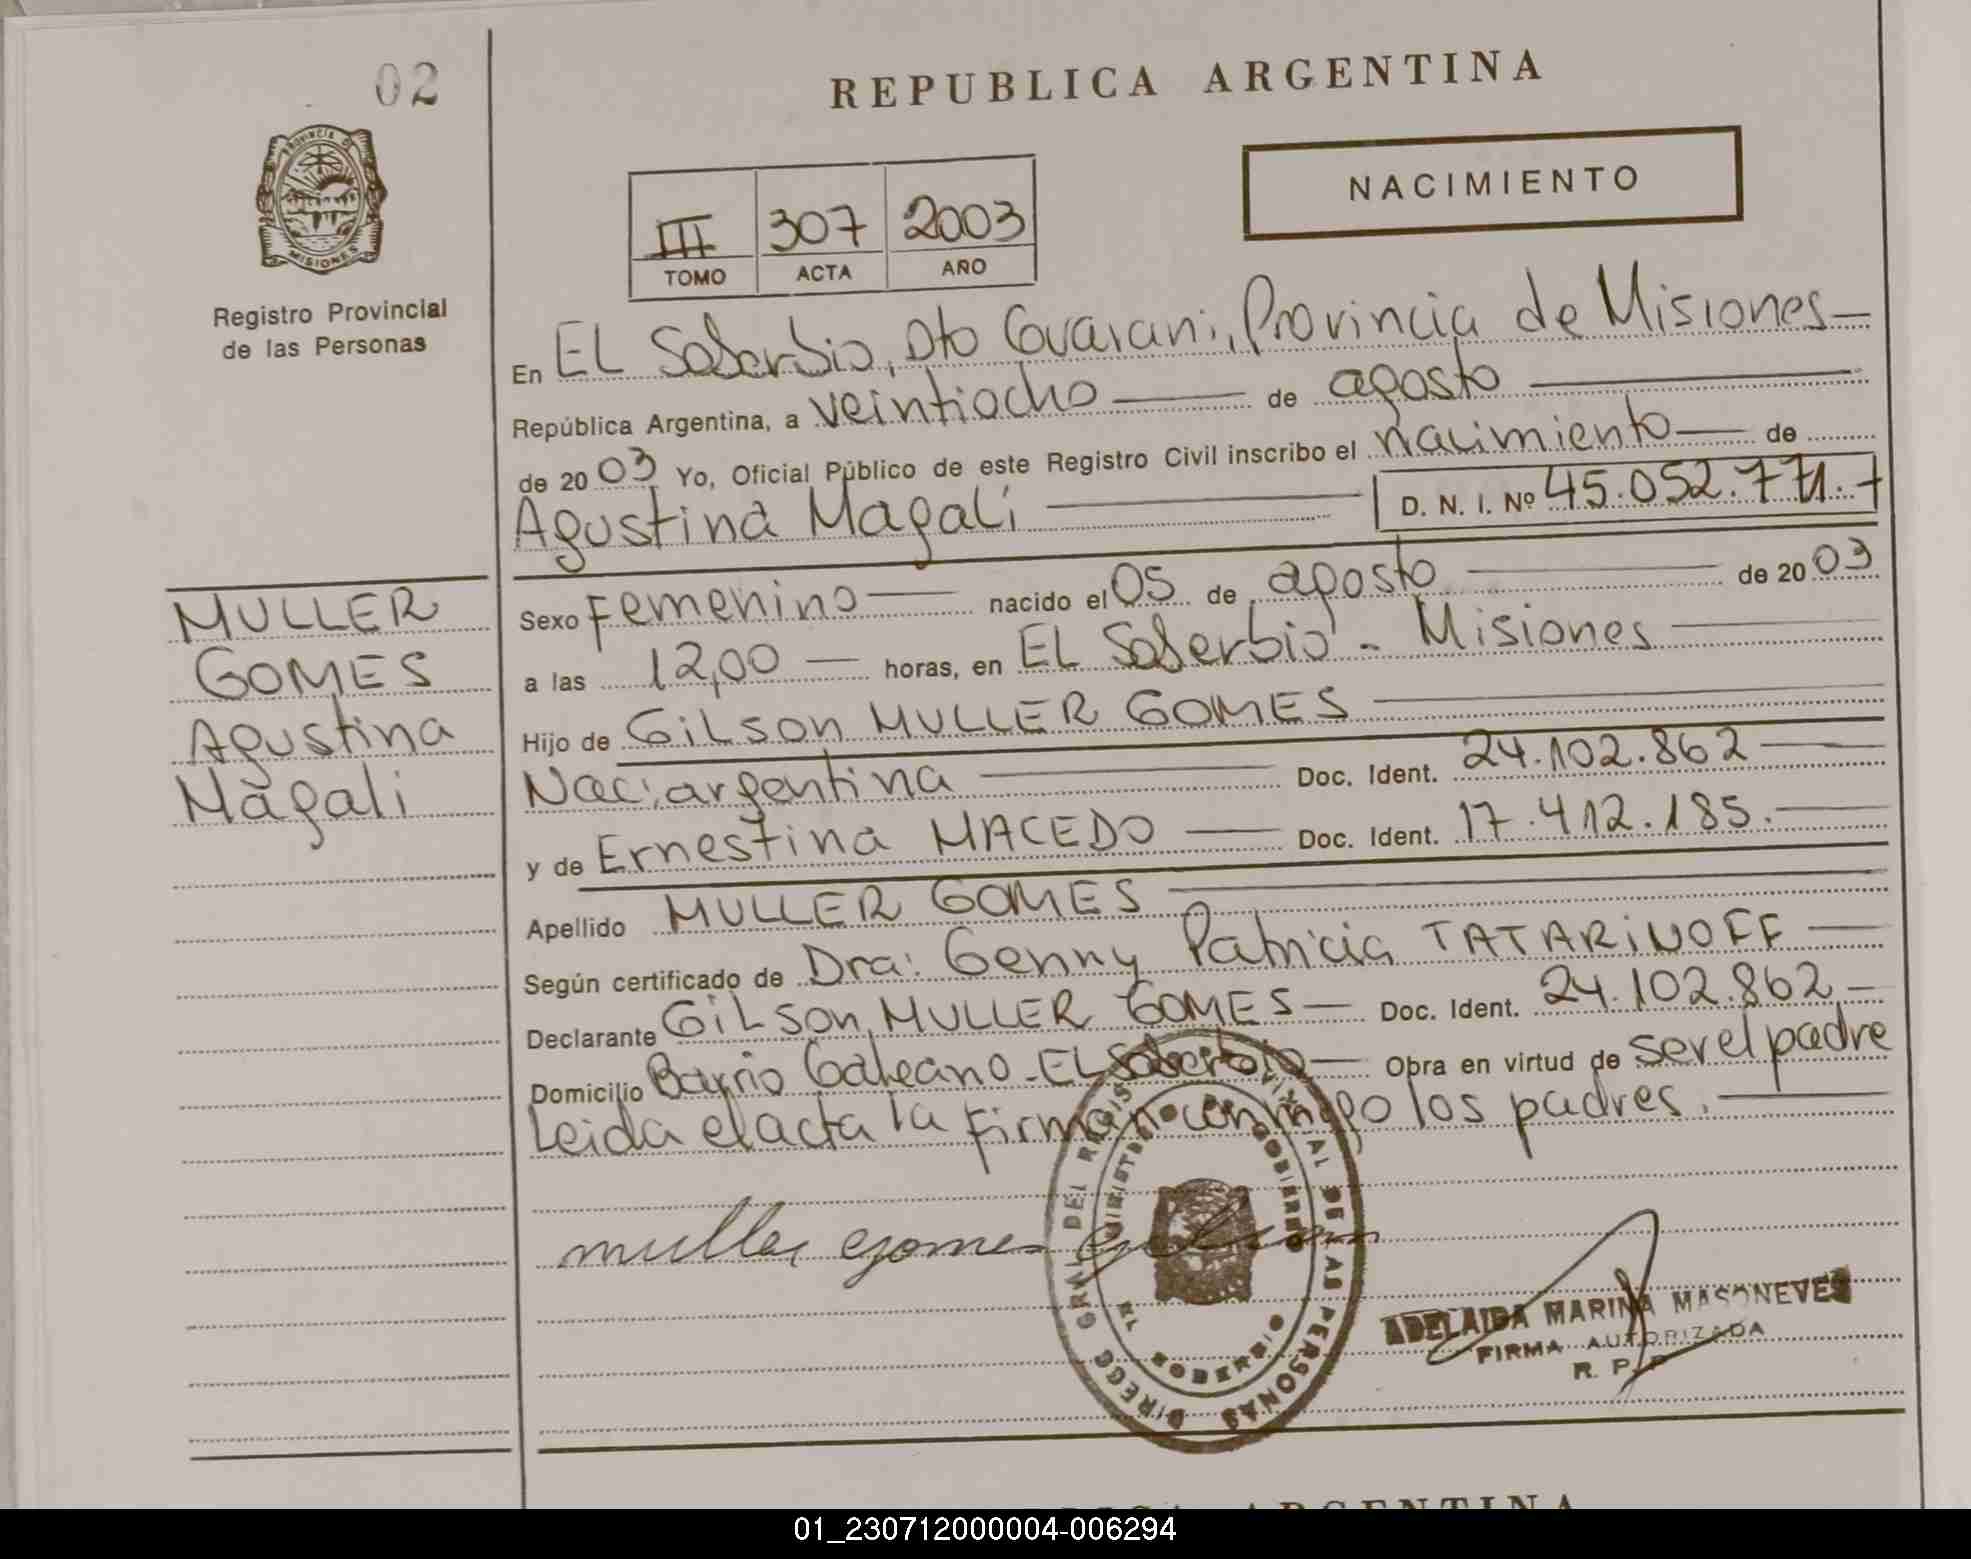 02
REPUBLICA ARGENTINA
PROVINCIA D
MISIONES
Registro Provincial
de las Personas
NACIMIENTO
III 307 2003
TOMO ACTA AÑO
En EL Soberbio, Dto Guarani, Provincia de Misiones
República Argentina, a veintiocho de agosto
de 2003 Yo, Oficial Público de este Registro Civil inscribo el nacimiento de
Agustina Magali D. N. I. Nº 45.052.771.-
MULLER
GOMES
Agustina
Magali
Sexo Femenino nacido el 05 de agosto de 2003
a las 12,00 horas, en EL Soberbio - Misiones
Hijo de GiLson MULLER GOMES
Nac: argentina Doc. Ident. 24.102.862
y de Ernestina MACEDO Doc. Ident. 17.412.185.
Apellido MULLER GOMES
Según certificado de Dra: Genny Patricia TATARiNOFF
Declarante GiLson MULLER GOMES Doc. Ident. 24.102.862
Domicilio Barrio Galeano - EL Soberbio Obra en virtud de ser el padre
Leida el acta la firman conmigo los padres.
muller gomes gilson
DIRECC GRAL DEL REGIST PROVINCIAL DE LAS PERSONAS
MINISTERIO DE GOBIERNO
EL SOBERBIO
ADELAIDA MARINA MASONEVES
FIRMA AUTORIZADA
R. P. P.
ARGENTINA
01_230712000004-006294